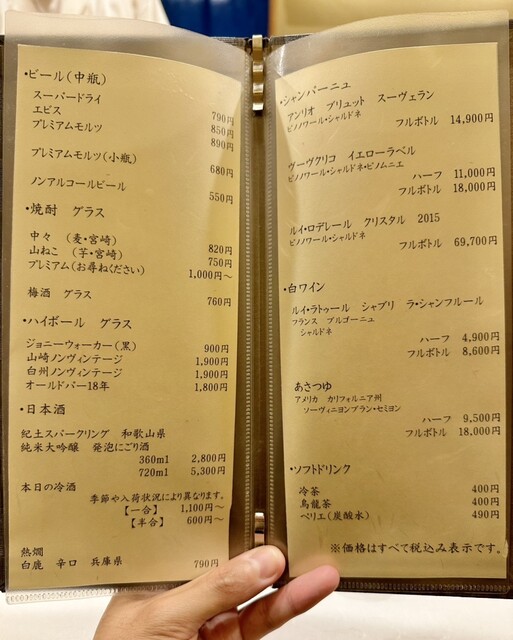 ・ビール（中瓶）
スーパードライ 790円
エビス 850円
プレミアムモルツ 890円
プレミアムモルツ（小瓶） 680円
ノンアルコールビール 550円
・焼酎 グラス
中々 （麦・宮崎） 820円
山ねこ （芋・宮崎） 750円
プレミアム（お尋ねください） 1,000円～
梅酒 グラス 760円
・ハイボール グラス
ジョニーウォーカー（黒） 900円
山崎ノンヴィンテージ 1,900円
白州ノンヴィンテージ 1,900円
オールドパー18年 1,800円
・日本酒
紀土スパークリング 和歌山県
純米大吟醸 発泡にごり酒
360ml 2,800円
720ml 5,300円
本日の冷酒
季節や入荷状況により異なります。
【一合】 1,100円～
【半合】 600円～
熱燗
白鹿 辛口 兵庫県 790円
・シャンパーニュ
アンリオ ブリュット スーヴェラン
ピノノワール・シャルドネ
フルボトル 14,900円
ヴーヴクリコ イエローラベル
ピノノワール・シャルドネ・ピノムニエ
ハーフ 11,000円
フルボトル 18,000円
ルイ・ロデレール クリスタル 2015
ピノノワール・シャルドネ
フルボトル 69,700円
・白ワイン
ルイ・ラトゥール シャブリ ラ・シャンフルール
フランス ブルゴーニュ
シャルドネ
ハーフ 4,900円
フルボトル 8,600円
あさつゆ
アメリカ カリフォルニア州
ソーヴィニヨンブラン・セミヨン
ハーフ 9,500円
フルボトル 18,000円
・ソフトドリンク
冷茶 400円
烏龍茶 400円
ペリエ（炭酸水） 490円
※価格はすべて税込み表示です。